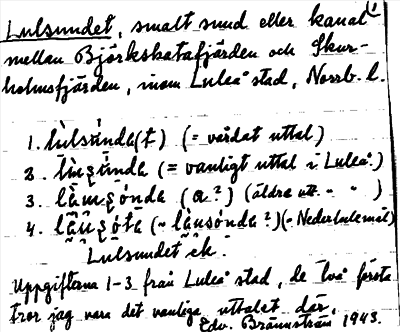 Lulsundet, smalt sund eller kanal
mellan Björkskatafjärden och Skur-
holmsfjärden, inom Luleå stad, Norrb. l.
1. lùlsúnda(t) (= vårdat uttal)
2. (= vanligt uttal i Luleå.)
3. (a?) (äldre utt. - " - )
4. (- Nederlulemål)
Lulsundet ek.
Uppgifterna 1-3 från Luleå stad, de två första
tror jag vara det vanliga uttalet där.
Edv. Brännström 1943.